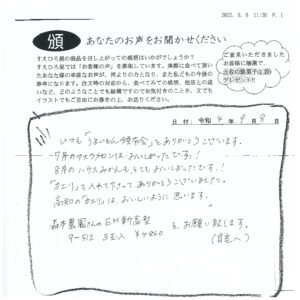 2022. 9. 8 11:30 P. 1
頒
あなたのお声をお聞かせください
すえひろ屋の商品を召し上がっての感想はいかがでしょうか?
すえひろ屋では「お客様の声」を募集しています。実際に食べて頂いた
あなた様の率直なお声が、何よりの力となり、また私どもの今後の
参考になります。注文時の対応から、食べてみての感想、他店との違
いなど、どのようなことでも結構ですのでお気付きのことを、文でも
イラストでもご自由にお書きの上、お送りください。
ご意見いただきました
お客様に抽選で、
プレゼント!!
日付: 令和4年9月8日
いつも「うまいもん頒布会」をありがとうございます。
7月の はおいしかったです!
8月のハウスみかんもとてもおいしかったです!
「カエリ」を入れて下さって ありがとうございました。
高知の「カエリ」は、おいしいように思います。
森本農園さんのEM新高梨
9-512 8玉入 ¥4860 を、お願い致します。
(自宅へ)